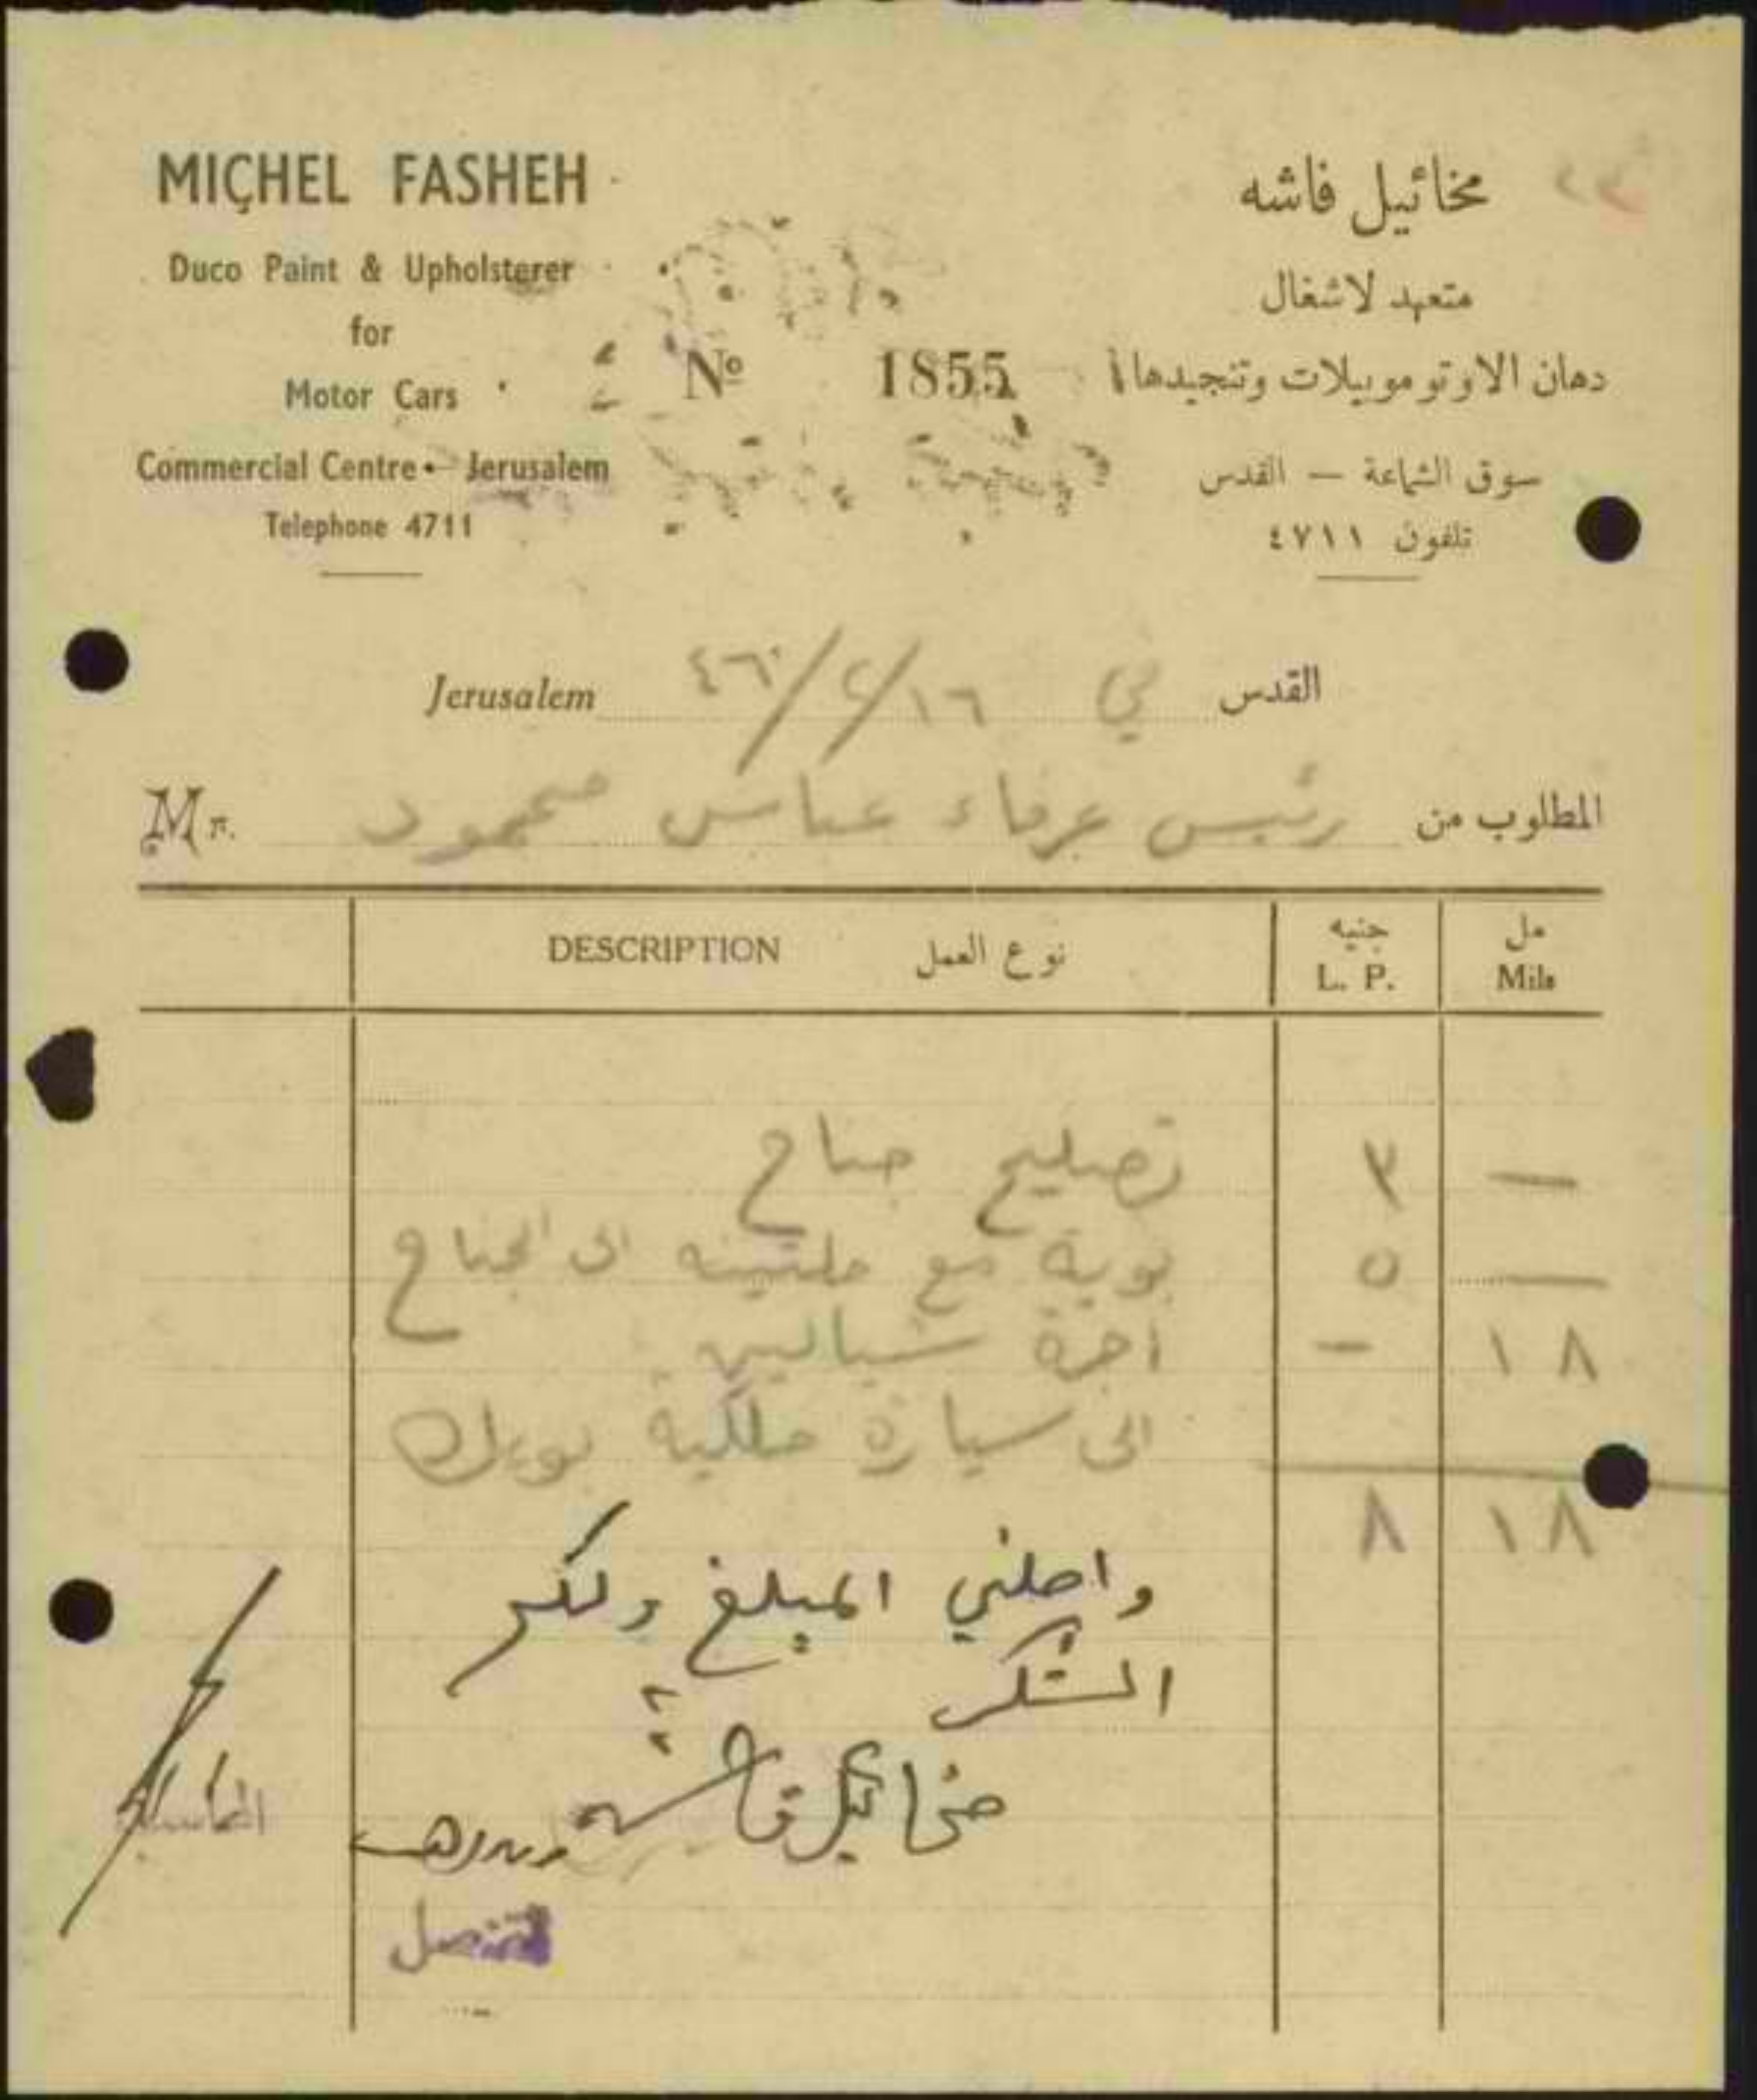 MICHEL FASHEH
Duco Paint & Upholsterer
for
Motor Cars
Commercial Centre - Jerusalem
Telephone 4711
مخائيل فاشه
متعهد لاشغال
دهان الاوتوموبيلات وتنجيدها
سوق الشماعة — القدس
تلفون ٤٧١١
№ 1855
Jerusalem ٤٦/٢/١٦ في القدس
المطلوب من رئيس عرفاء عباس محمود Mr.
DESCRIPTION نوع العمل جنيه L. P. مل Mils
تصليح جناح ٣ —
بوية مع ملتينه الى الجناح ٥ —
اجرة شيالين - ١٨
الى سيارة ملكية بويك
٨ ١٨
واصلني المبلغ ولكم
الشكر
مخائيل فاشه
المحاسب
القنصل